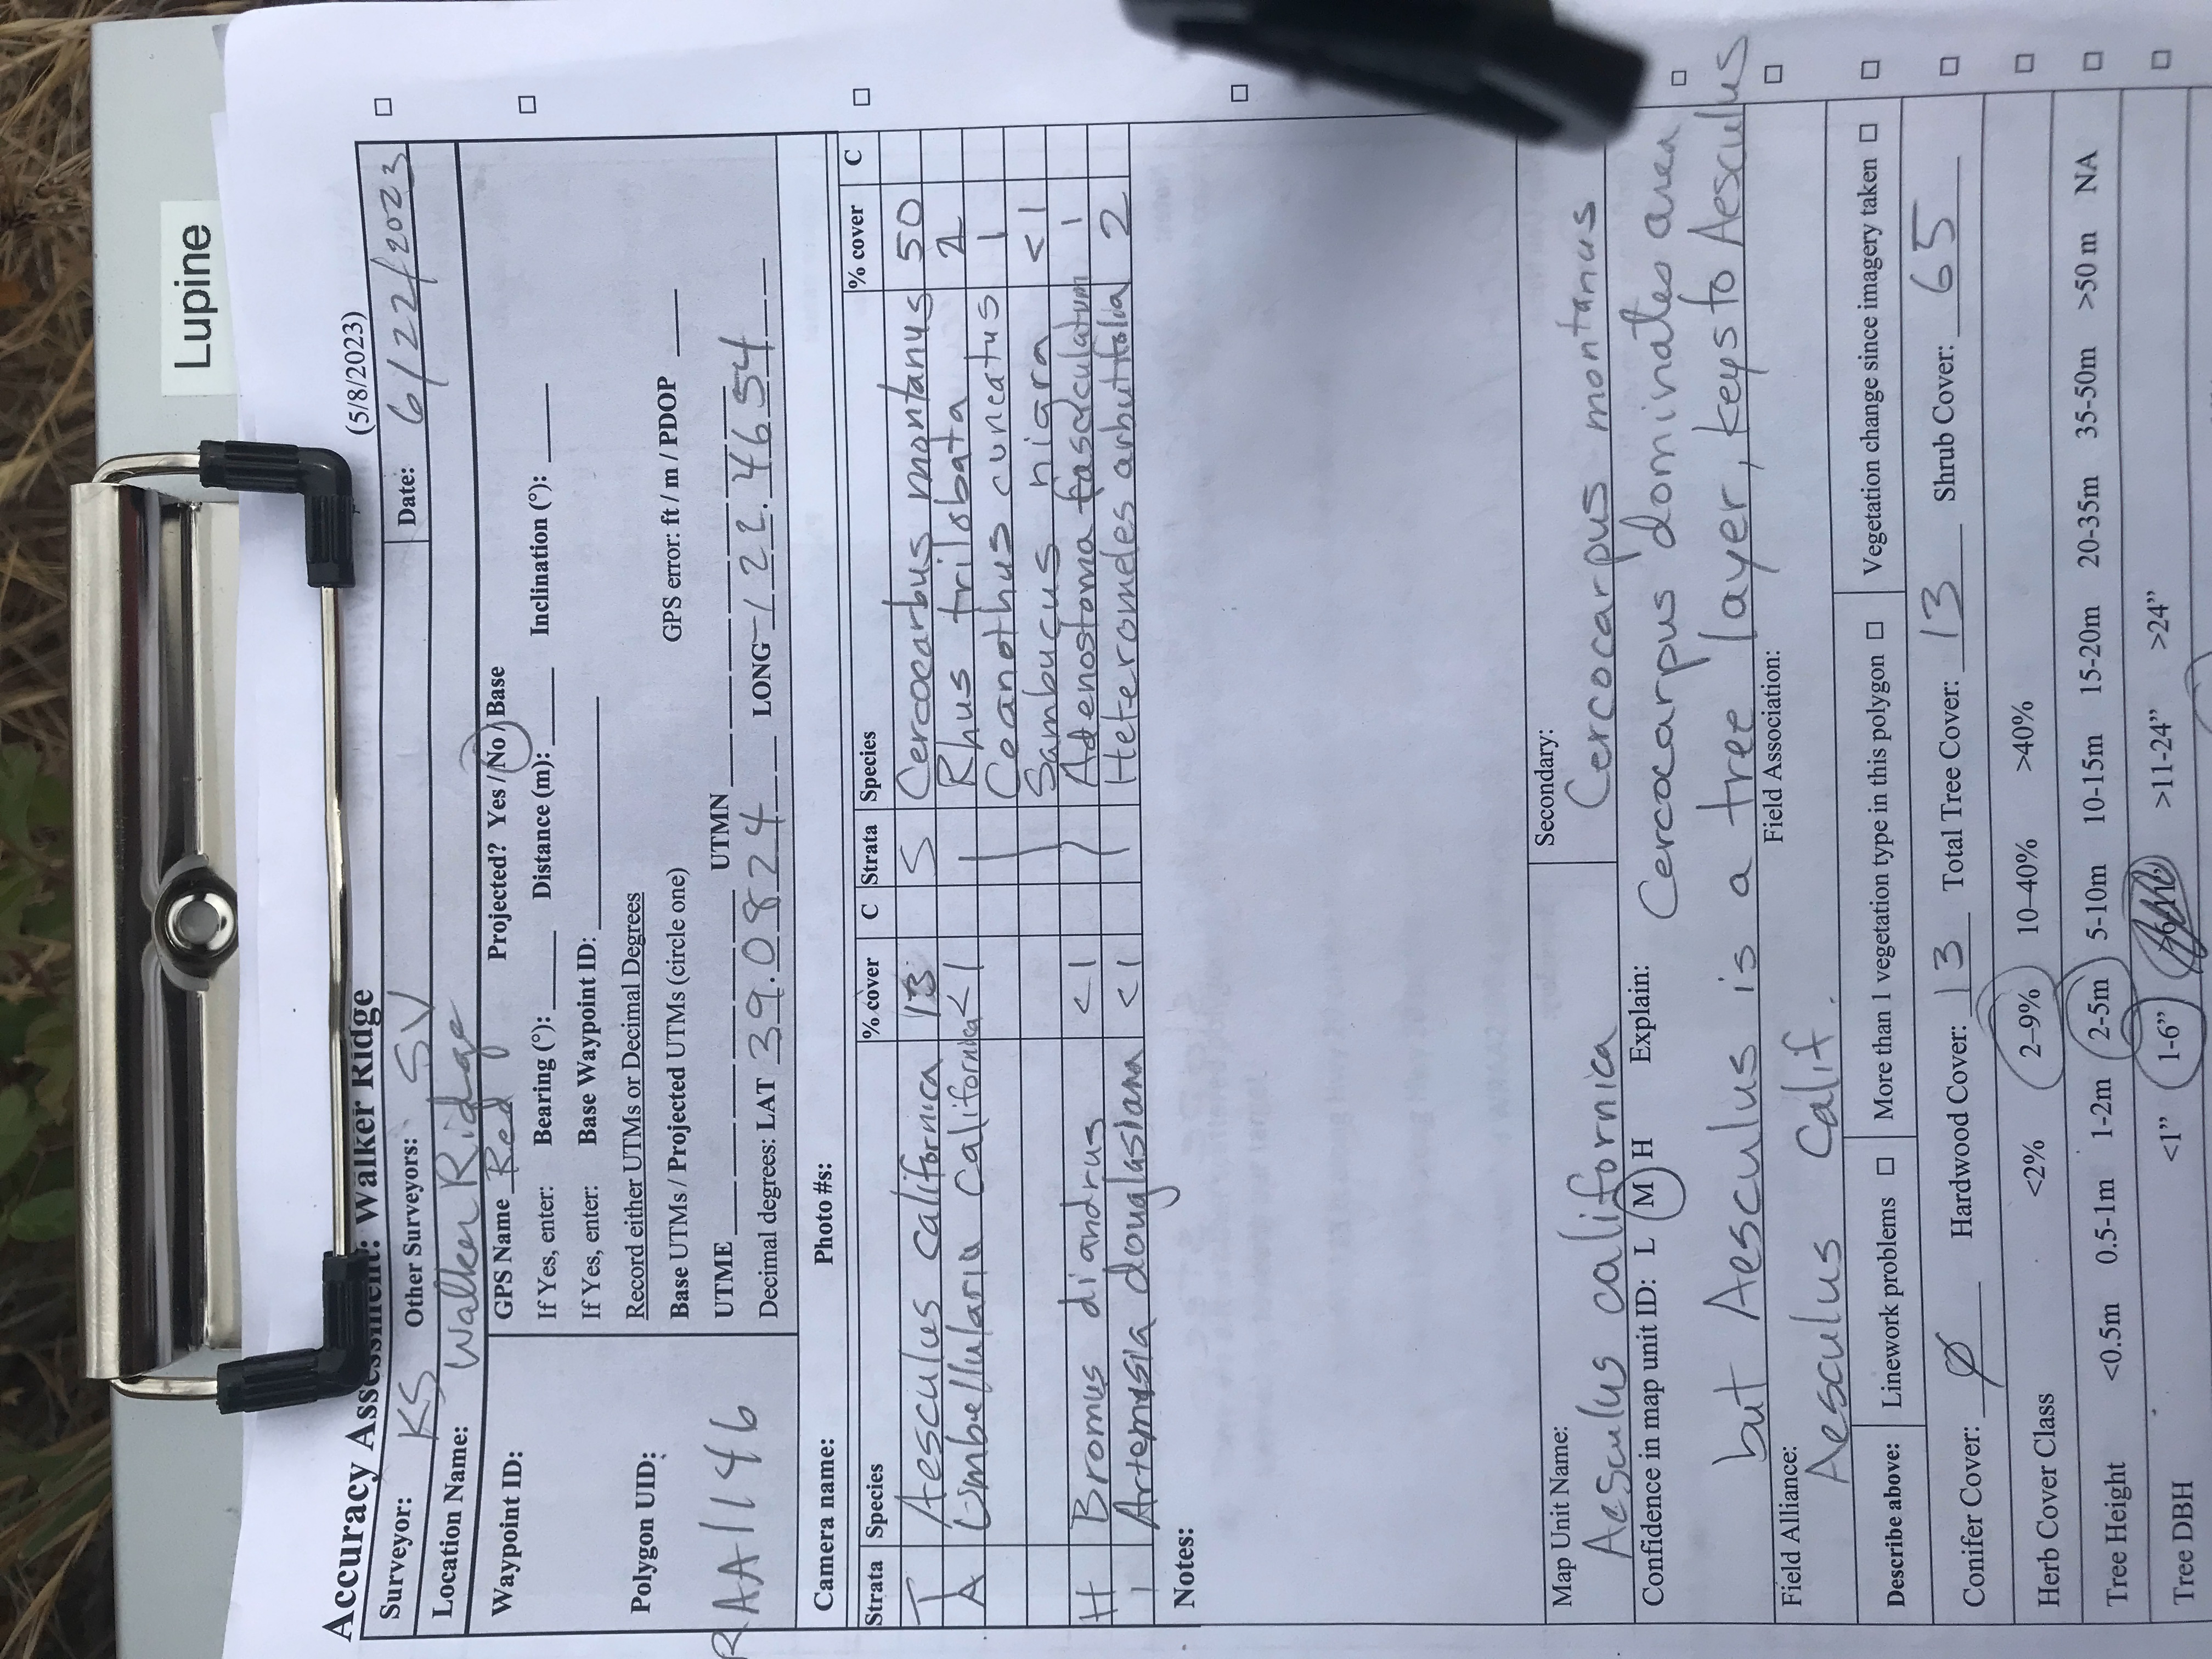 Lupine
Accuracy Assessment: Walker Ridge (5/8/2023)
Surveyor: KS Other Surveyors: SV Date: 6/22/2023
Location Name: Walker Ridge
Waypoint ID: GPS Name Red Projected? Yes / No / Base
If Yes, enter: Bearing (°): Distance (m): Inclination (°):
If Yes, enter: Base Waypoint ID:
Polygon UID: Record either UTMs or Decimal Degrees
RAA1146
Base UTMs / Projected UTMs (circle one) GPS error: ft / m / PDOP
UTME UTMN
Decimal degrees: LAT 39.0824 LONG -122.4654
Camera name: Photo #s:
Strata Species % cover C Strata Species % cover C
T Aesculus californica 13 S Cercocarbus montanus 50
A Umbellularia californica <1 Rhus trilobata 2
Ceanothus cuneatus 1
Sambucus nigra <1
H Bromus diandrus <1 Adenostoma fasciculatum 1
Artemisia douglasiana <1 Heteromeles arbutifolia 2
Notes:
Map Unit Name: Secondary:
Aesculus californica Cercocarpus montanus
Confidence in map unit ID: L M H Explain: Cercocarpus dominates area
but Aesculus is a tree layer, keys to Aesculus
Field Alliance: Field Association:
Aesculus Calif.
Describe above: Linework problems □ More than 1 vegetation type in this polygon □ Vegetation change since imagery taken □
Conifer Cover: Ø Hardwood Cover: 13 Total Tree Cover: 13 Shrub Cover: 65
Herb Cover Class <2% 2–9% 10–40% >40%
Tree Height <0.5m 0.5-1m 1-2m 2-5m 5-10m 10-15m 15-20m 20-35m 35-50m >50 m NA
Tree DBH <1" 1-6" >11-24" >24"